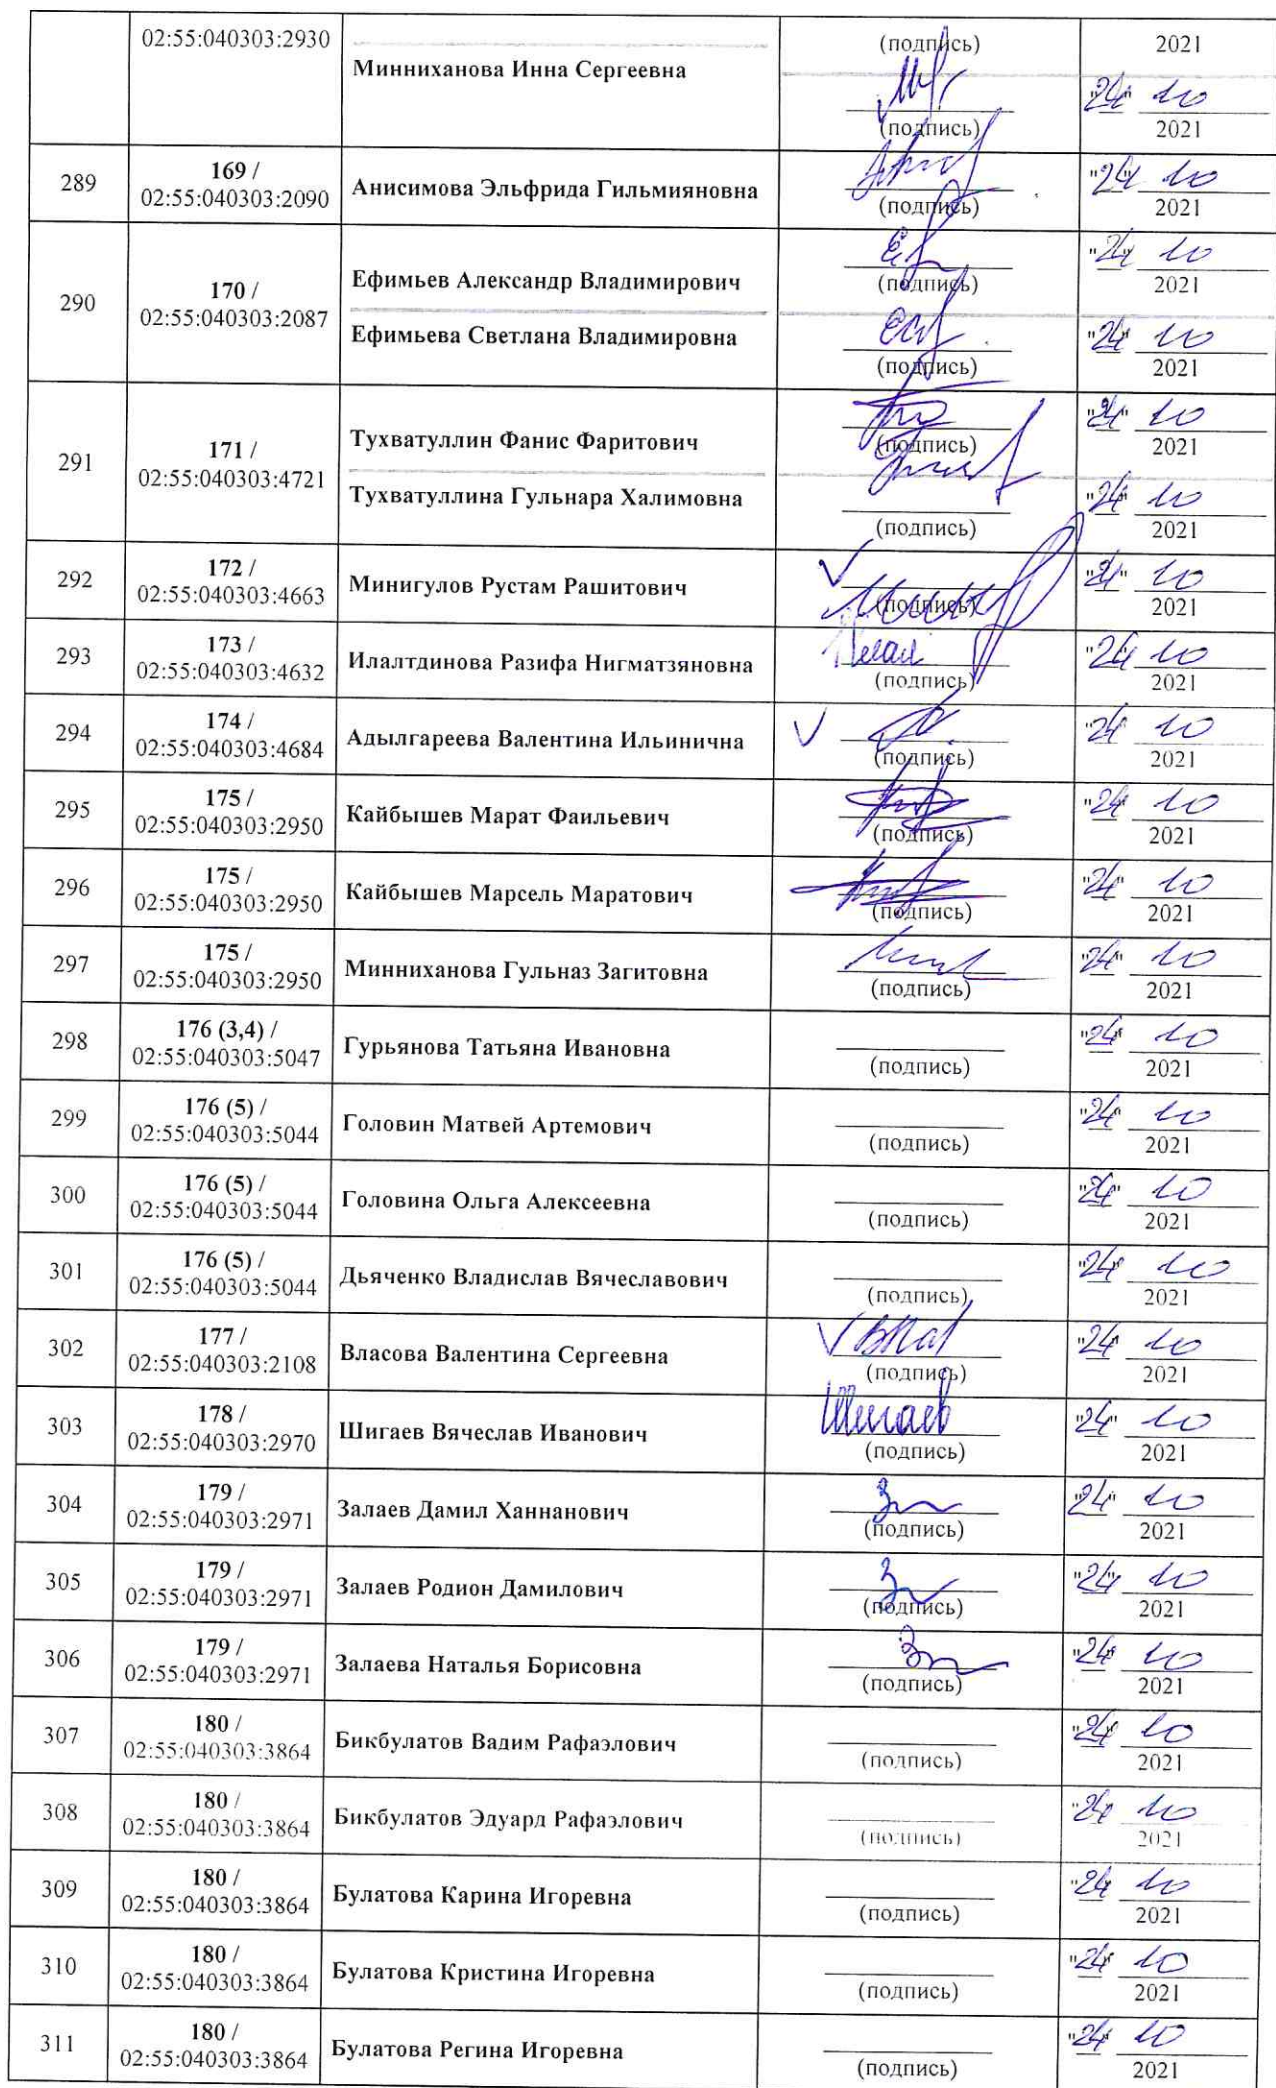 02:55:040303:2930
(подпись)
2021
Минниханова Инна Сергеевна
"24" 10
(подпись)
2021
289
169 /
02:55:040303:2090
Анисимова Эльфрида Гильмияновна
(подпись)
"24" 10
2021
290
170 /
02:55:040303:2087
Ефимьев Александр Владимирович
(подпись)
"24" 10
2021
Ефимьева Светлана Владимировна
(подпись)
"24" 10
2021
291
171 /
02:55:040303:4721
Тухватуллин Фанис Фаритович
(подпись)
"24" 10
2021
Тухватуллина Гульнара Халимовна
(подпись)
"24" 10
2021
292
172 /
02:55:040303:4663
Минигулов Рустам Рашитович
(подпись)
"24" 10
2021
293
173 /
02:55:040303:4632
Илалтдинова Разифа Нигматзяновна
(подпись)
"24" 10
2021
294
174 /
02:55:040303:4684
Адылгареева Валентина Ильинична
(подпись)
"24" 10
2021
295
175 /
02:55:040303:2950
Кайбышев Марат Фаильевич
(подпись)
"24" 10
2021
296
175 /
02:55:040303:2950
Кайбышев Марсель Маратович
(подпись)
"24" 10
2021
297
175 /
02:55:040303:2950
Минниханова Гульназ Загитовна
(подпись)
"24" 10
2021
298
176 (3,4) /
02:55:040303:5047
Гурьянова Татьяна Ивановна
(подпись)
"24" 10
2021
299
176 (5) /
02:55:040303:5044
Головин Матвей Артемович
(подпись)
"24" 10
2021
300
176 (5) /
02:55:040303:5044
Головина Ольга Алексеевна
(подпись)
"24" 10
2021
301
176 (5) /
02:55:040303:5044
Дьяченко Владислав Вячеславович
(подпись)
"24" 10
2021
302
177 /
02:55:040303:2108
Власова Валентина Сергеевна
(подпись)
"24" 10
2021
303
178 /
02:55:040303:2970
Шигаев Вячеслав Иванович
Шигаев
(подпись)
"24" 10
2021
304
179 /
02:55:040303:2971
Залаев Дамил Ханнанович
(подпись)
"24" 10
2021
305
179 /
02:55:040303:2971
Залаев Родион Дамилович
(подпись)
"24" 10
2021
306
179 /
02:55:040303:2971
Залаева Наталья Борисовна
(подпись)
"24" 10
2021
307
180 /
02:55:040303:3864
Бикбулатов Вадим Рафаэлович
(подпись)
"24" 10
2021
308
180 /
02:55:040303:3864
Бикбулатов Эдуард Рафаэлович
(подпись)
"24" 10
2021
309
180 /
02:55:040303:3864
Булатова Карина Игоревна
(подпись)
"24" 10
2021
310
180 /
02:55:040303:3864
Булатова Кристина Игоревна
(подпись)
"24" 10
2021
311
180 /
02:55:040303:3864
Булатова Регина Игоревна
(подпись)
"24" 10
2021